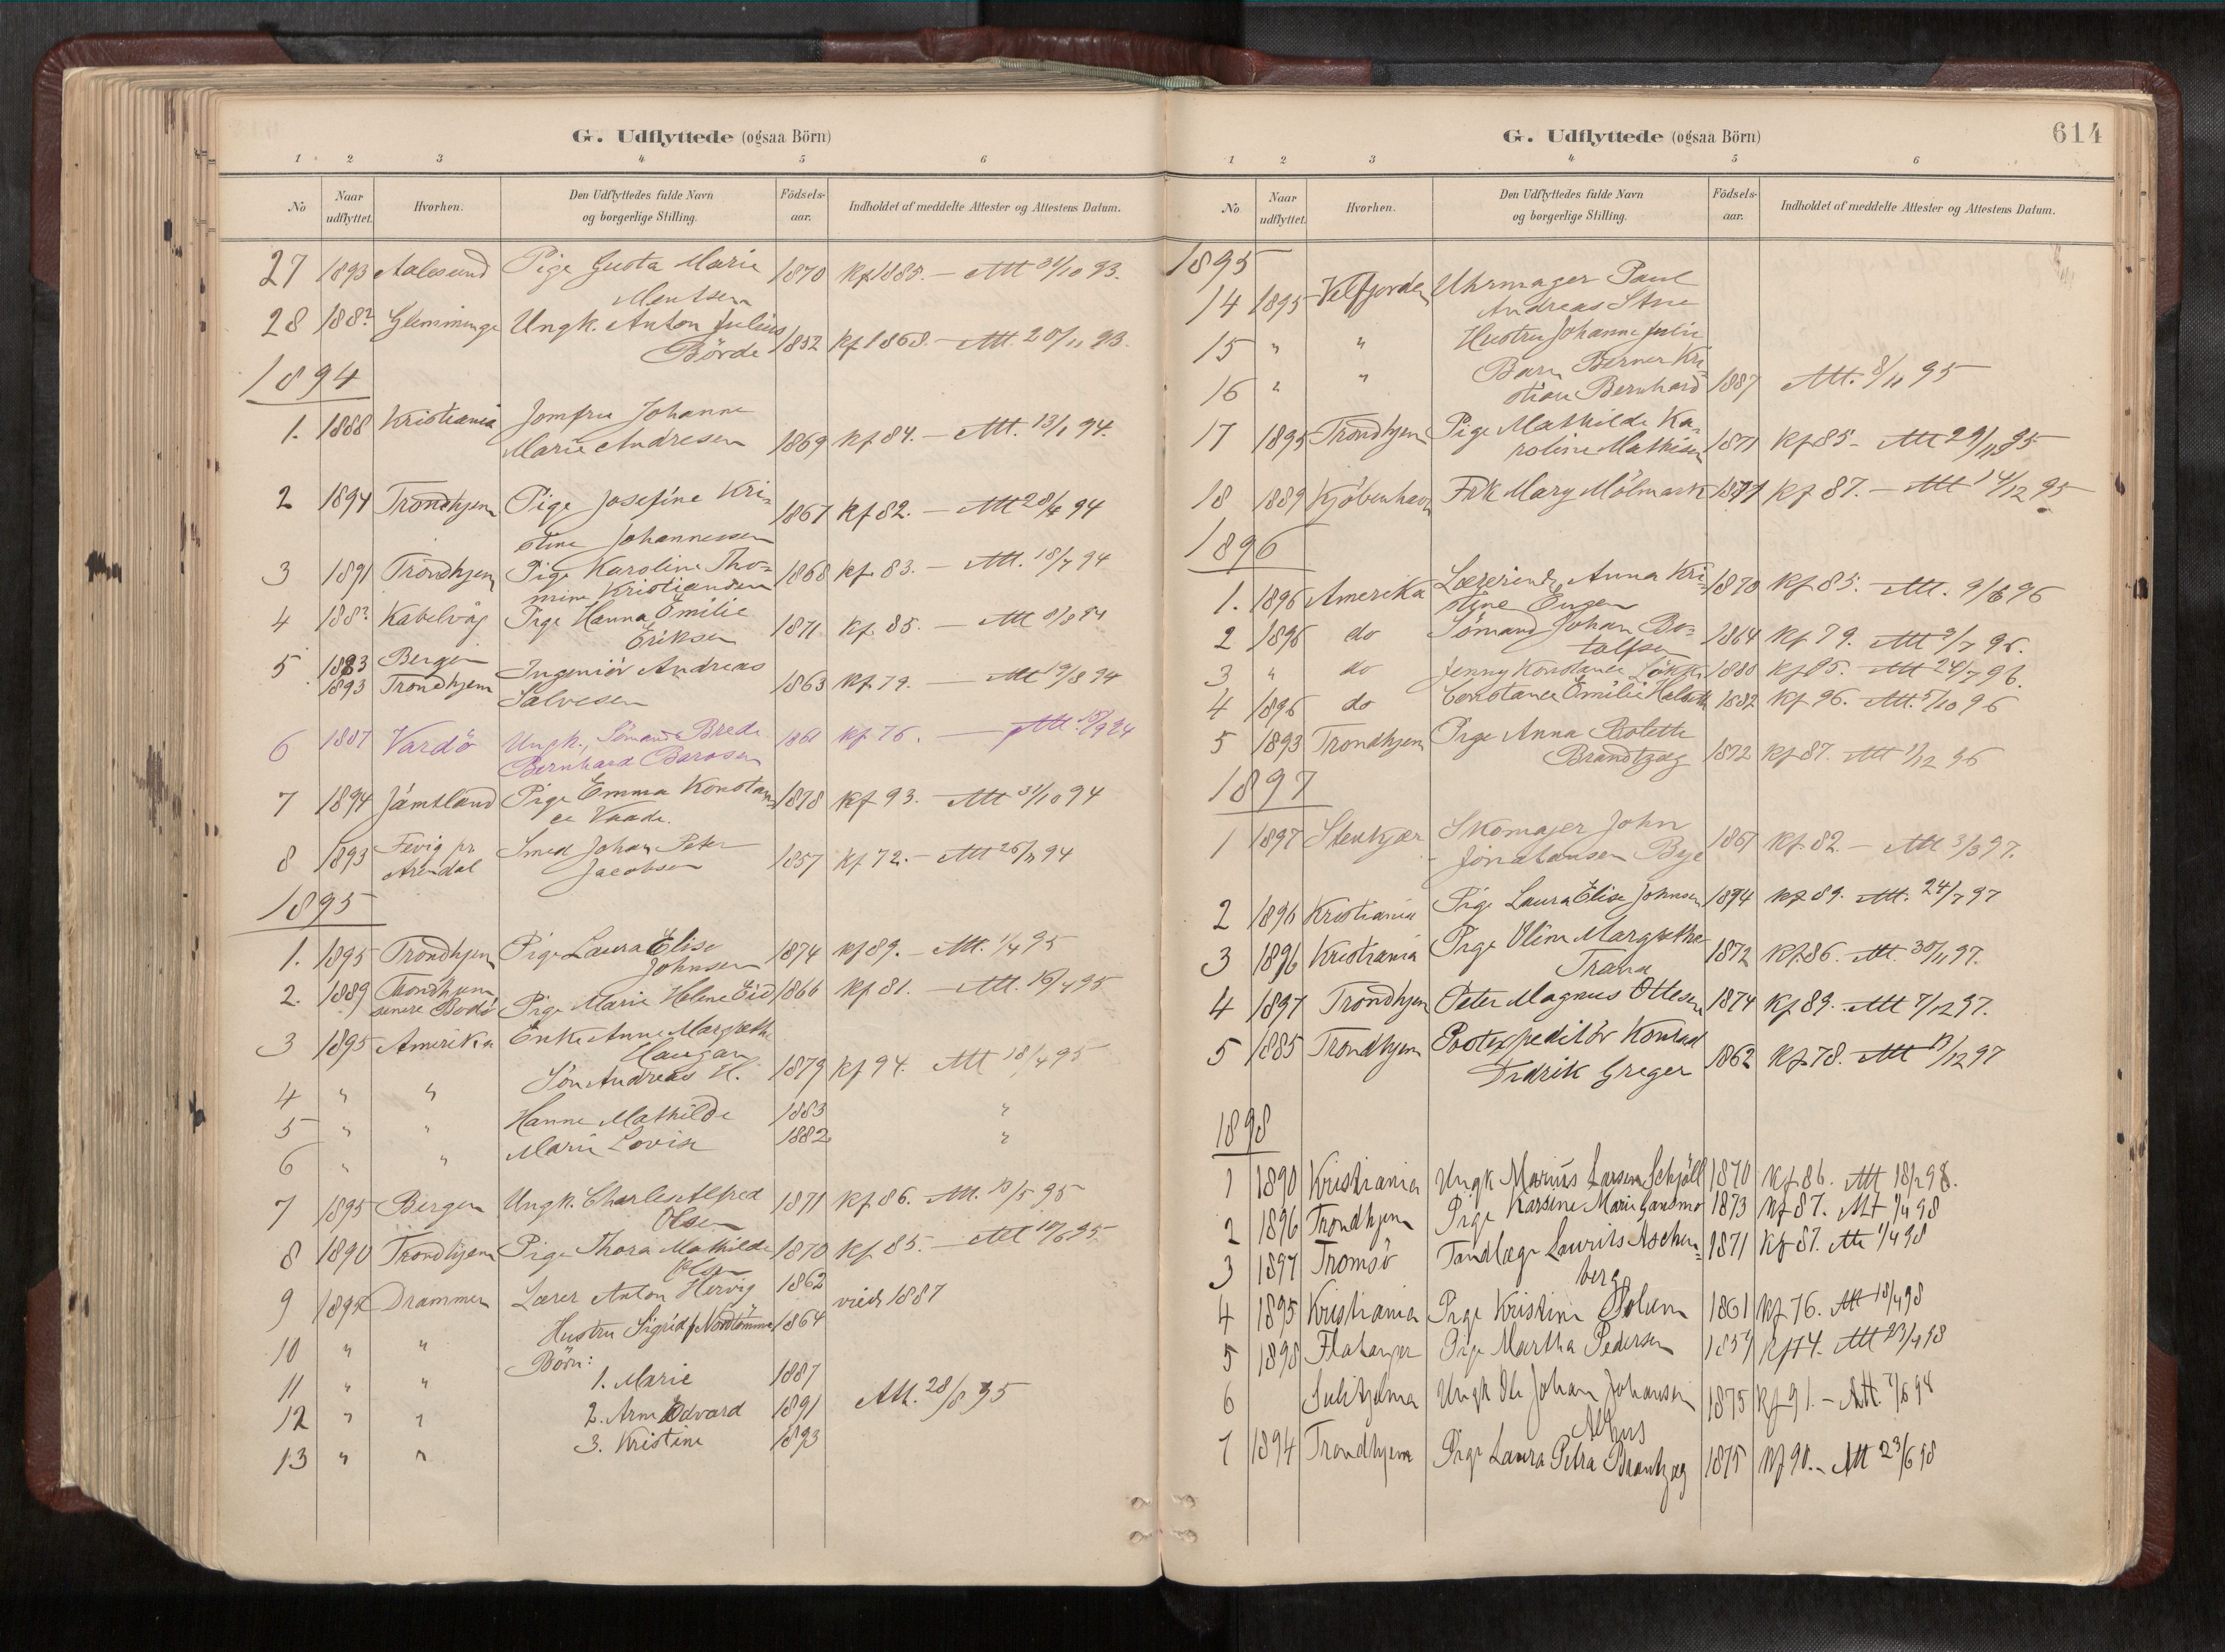 G. Udflyttede (ogsaa Börn)
1 2 3 4 5 6
No Naar udflyttet. Hvorhen. Den Udflyttedes fulde Navn og borgerlige Stilling. Födsels-aar. Indholdet af meddelte Attester og Attestens Datum.
27 1893 Aalesund Pige Gusta Marie 1870 Kf 1885. — Att 31/10 93.
Mentsen
28 188? Glemminge Ungk. Anton Julius
Börde 1852 Kf 1868. — Att. 20/11 93.
1894
1. 1888 Kristiania Jomfru Johanne
Marie Andresen 1869 Kf 84. — Att. 13/1 94.
2 1894 Trondhjem Pige Josefine Kri-
stine Johannessen 1867 Kf 82. — Att 28/4 94
3 1891 Trondhjem Pige Karoline Tho- 1868 Kf 83. — Att. 18/7 94
mine Kristiansen
4 188? Kabelvåg Pige Hanna Emilie
Eriksen 1871 Kf. 85. — Att 8/8 94
5 1883 Bergen Ingeniör Andreas
1893 Trondhjem Salvesen 1863 Kf 79. — Att 19/8 94
6 1887 Vardö Ungk., Sömand Brede 1861 Kf 76. — Att. 15/9 94
Bernhard
7 1894 Jämtland Pige Emma Konstan- 1878 Kf 93. — Att 31/10 94
ce Vaade.
8 1893 Fevig pr. Arendal Smed Johan Peter
Jacobsen 1857 Kf 72. — Att 26/11 94
1895
1. 1895 Trondhjem Pige Laura Elise
Johnsen 1874 Kf 89. — Att. 1/4 95
2. 1889 Trondhjem senere Bodö Pige Marie Helene Eid 1866 Kf 81. — Att. 16/4 95
3 1895 Amerika Enke Anne Margrethe
Haugan
4 " " Sön Andreas H. 1879 Kf 94. Att 18/4 95
5 " " Hanne Mathilde 1883 "
6 " " Marie Lovise 1882 "
7 1895 Bergen Ungk. Charles Alfred
Olsen 1871 Kf 86. Att. 10/5 95
8 1890 Trondhjem Pige Thora Mathilde 1870 Kf 85. — Att 10/6 95.
Olsen
9 1892 Drammen Lærer Anton Hervig 1862 viede 1887
10 " " Hustru Sigrid f. Nordtömme 1864
Börn:
11 " " 1. Marie 1887
12 " " 2. Arne Edvard 1891 Att. 28/8 95
13 " " 3. Kristine 1893
G. Udflyttede (ogsaa Börn) 614
1 2 3 4 5 6
No Naar udflyttet. Hvorhen. Den Udflyttedes fulde Navn og borgerlige Stilling. Födsels-aar. Indholdet af meddelte Attester og Attestens Datum.
1895
14 1895 Velfjorden Uhrmager Paul
Andreas Stne
15 " " Hustru Johanne Julie
16 " " Barn Berner Kri-
stian Bernhard 1887 Att. 8/11 95
17 1895 Trondhjem Pige Mathilde Ka-
roline Mathisen 1871 Kf 85 - Att 29/11 95
18 1889 Kjöbenhavn Frk Mary Mölmark 1871 Kf 87. — Att 14/12 95
1896
1. 1896 Amerika Lærerinde Anna Kri- 1870 Kf 85. — Att. 9/6 96
stine Eugen
2 1896 do Sömand Johan Bo-
talfsen 1864 Kf 79. Att 2/7 96.
3 " do Jenny Konstance 1880 Kf 95. Att 24/7 96.
4 1896 do Constance Emilie 1882 Kf 96. Att. 5/10 96
5 1893 Trondhjem Pige Anna Bolette
Brandtzæg 1872 Kf 87. Att 1/12 96
1897
1 1897 Stenkjær Skomager John
Jonatansen Bye 1867 Kf. 82 — Att 3/3 97.
2 1896 Kristiania Pige Laura Elise Johnsen 1874 Kf 89. Att. 24/7 97
3 1896 Kristiania Pige Oline Margrethe
Trana 1872 Kf 86. Att. 30/11 97.
4 1897 Trondhjem Peter Magnus Ottesen 1874 Kf 89. Att 7/12 97.
5 1885 Trondhjem Postexpeditör Konrad
Fredrik Greger 1862 Kf 78. Att 17/12 97
1898
1 1890 Kristiania Ungk Marius Larsen Schjöll 1870 Kf 86. Att 18/2 98.
2 1896 Trondhjem Pige Karsine Marie Gansmo 1873 Kf 87. Att 1/4 98
3 1897 Tromsö Tandlæge Laurits Aschen-
berg 1871 Kf 87. Att 1/4 98
4 1895 Kristiania Pige Kristine Solem 1861 Kf 76. Att 18/4 98
5 1898 Flatanger Pige Martha Pedersen 1859 Kf 74. Att 23/4 98
6 Sulitjelma Ungk Ole Johan Johansen 1875 Kf 91. — Att. 7/6 98
7 1894 Trondhjem Pige Laura Petra Brantzæg 1875 Kf 90. — Att 23/6 98